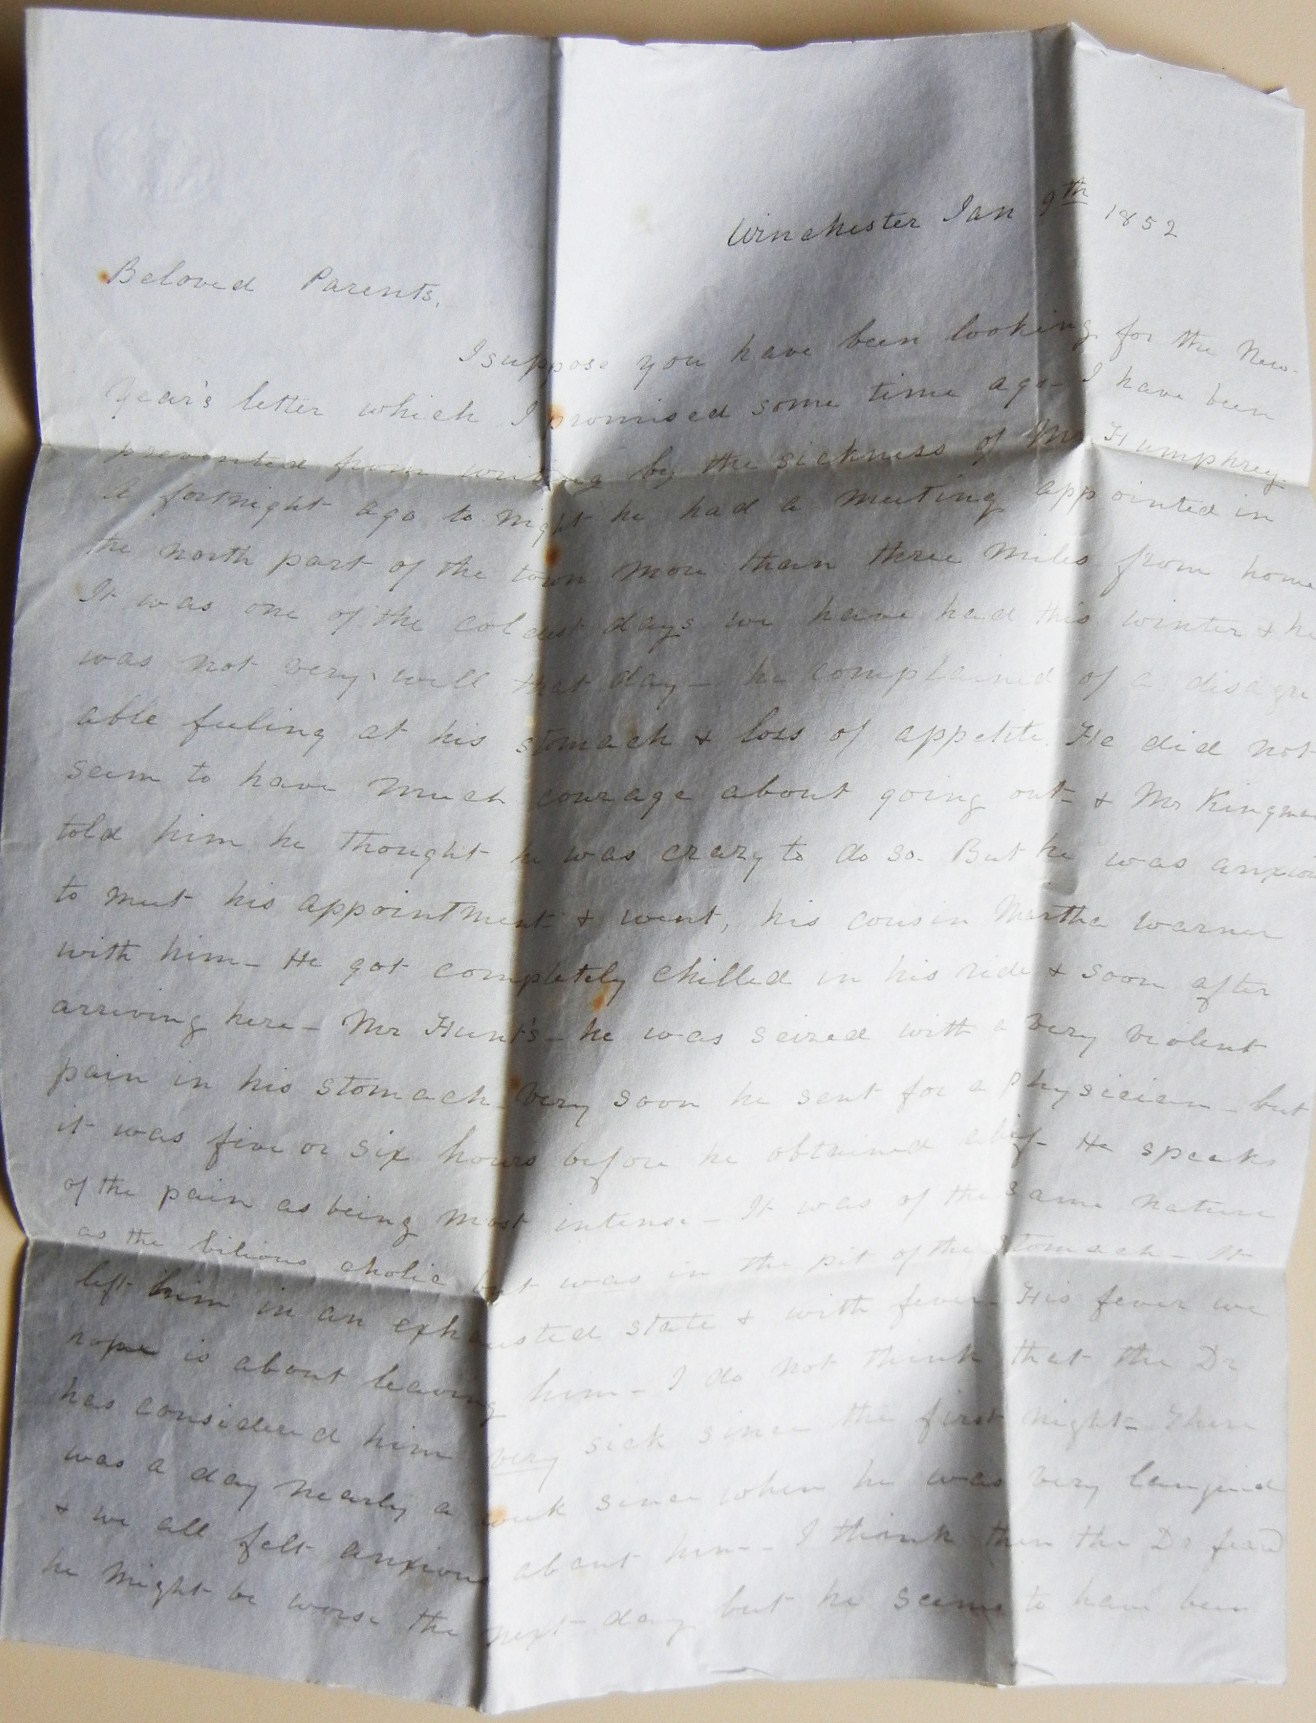 Winchester Jan 9th 1852
Beloved Parents,
I suppose you have been looking for the New-
Year's letter which I promised some time ago - I have been
prevented from writing by the sickness of Mr Humphrey.
A fortnight ago to night he had a meeting appointed in
the north part of the town more than three miles from home
It was one of the coldest days we have had this winter & he
was not very well that day - he complained of a disagre
able feeling at his stomach & loss of appetite. He did not
seem to have much courage about going out - & Mr Kingman
told him he thought he was crazy to do so. But he was anxious
to meet his appointment & went, his cousin Martha Warner
with him - He got completely chilled in his ride & soon after
arriving here - Mr Hunt's - he was seized with a very violent
pain in his stomach. Very soon he sent for a physician - but
it was five or six hours before he obtained relief - He speaks
of the pain as being most intense - It was of the same nature
as the bilious cholic but was in the pit of the stomach - It
left him in an exhausted state & with fever - His fever we
hope is about leaving him - I do not think that the Dr
has considered him very sick since the first night - There
was a day nearly a week since when he was very languid
& we all felt anxious about him - I think then the Dr feared
he might be worse the next day but he seems to have been